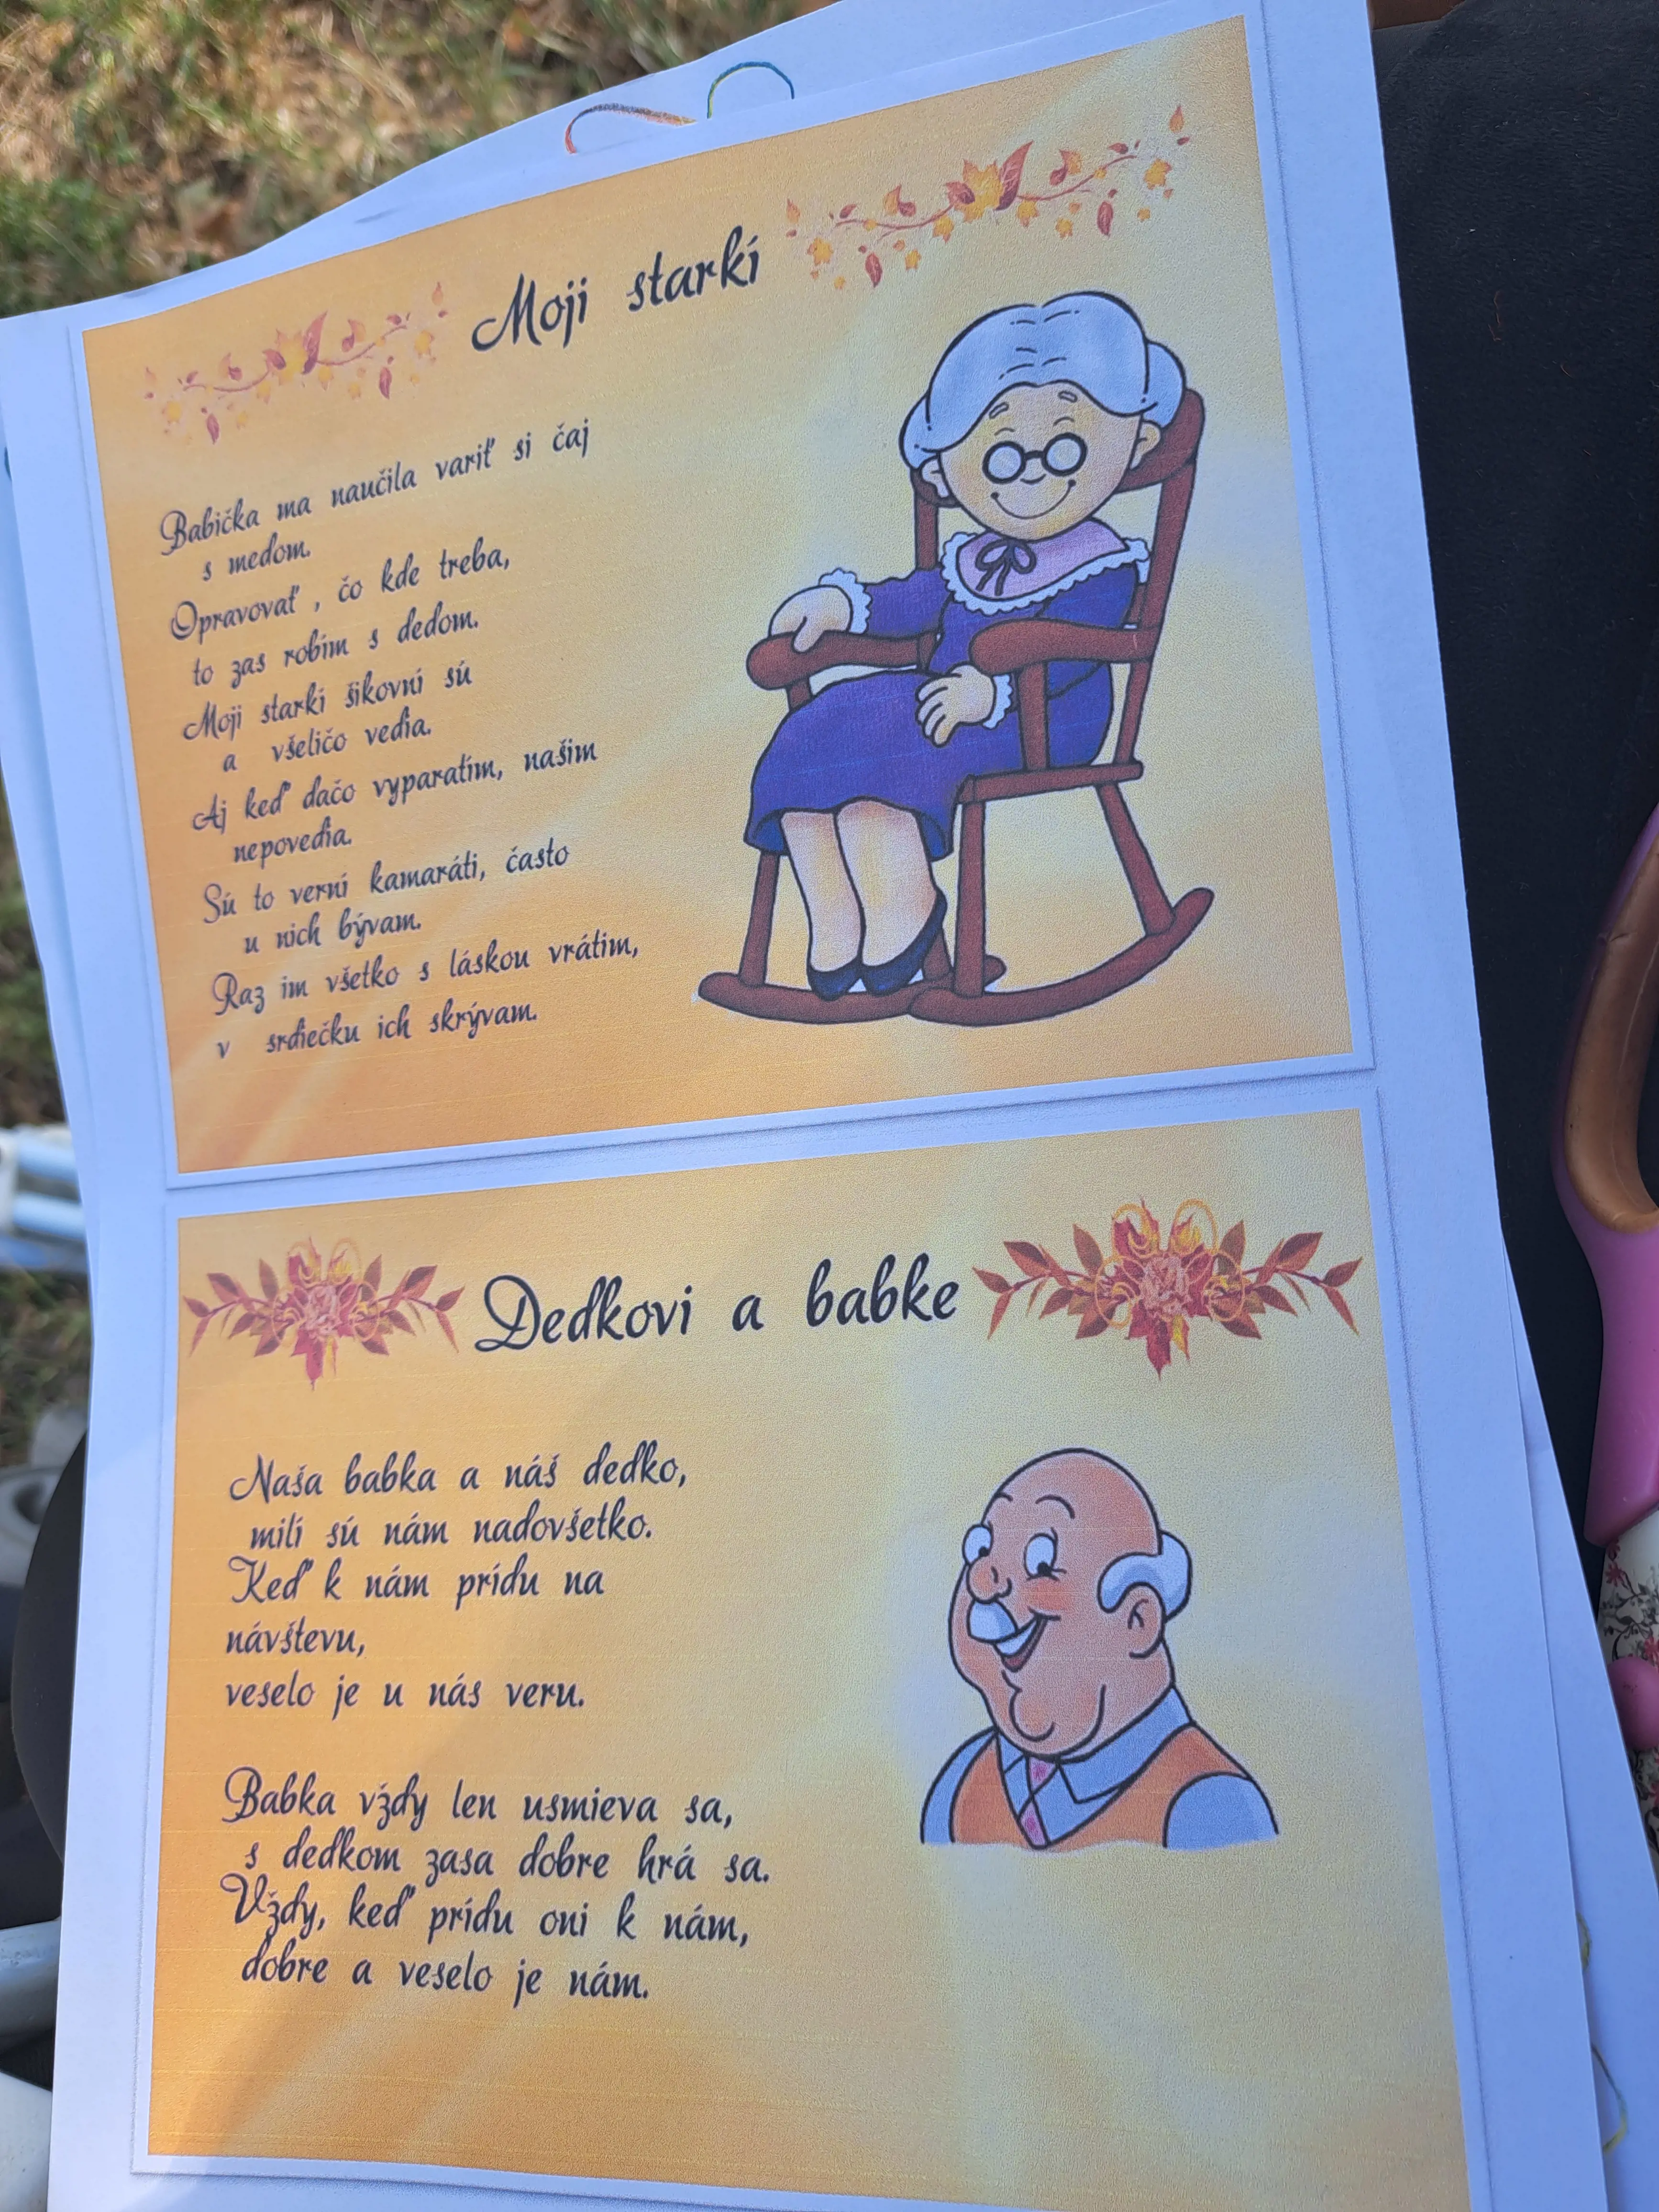 Moji starkí
Babička ma naučila variť si čaj
s medom.
Opravovať , čo kde treba,
to zas robím s dedom.
Moji starkí šikovní sú
a všeličo vedia.
Aj keď dačo vyparatím, našim
nepovedia.
Sú to verní kamaráti, často
u nich bývam.
Raz im všetko s láskou vrátim,
v srdiečku ich skrývam.
Dedkovi a babke
Naša babka a náš dedko,
milí sú nám nadovšetko.
Keď k nám prídu na
návštevu,
veselo je u nás veru.
Babka vždy len usmieva sa,
s dedkom zasa dobre hrá sa.
Vždy, keď prídu oni k nám,
dobre a veselo je nám.